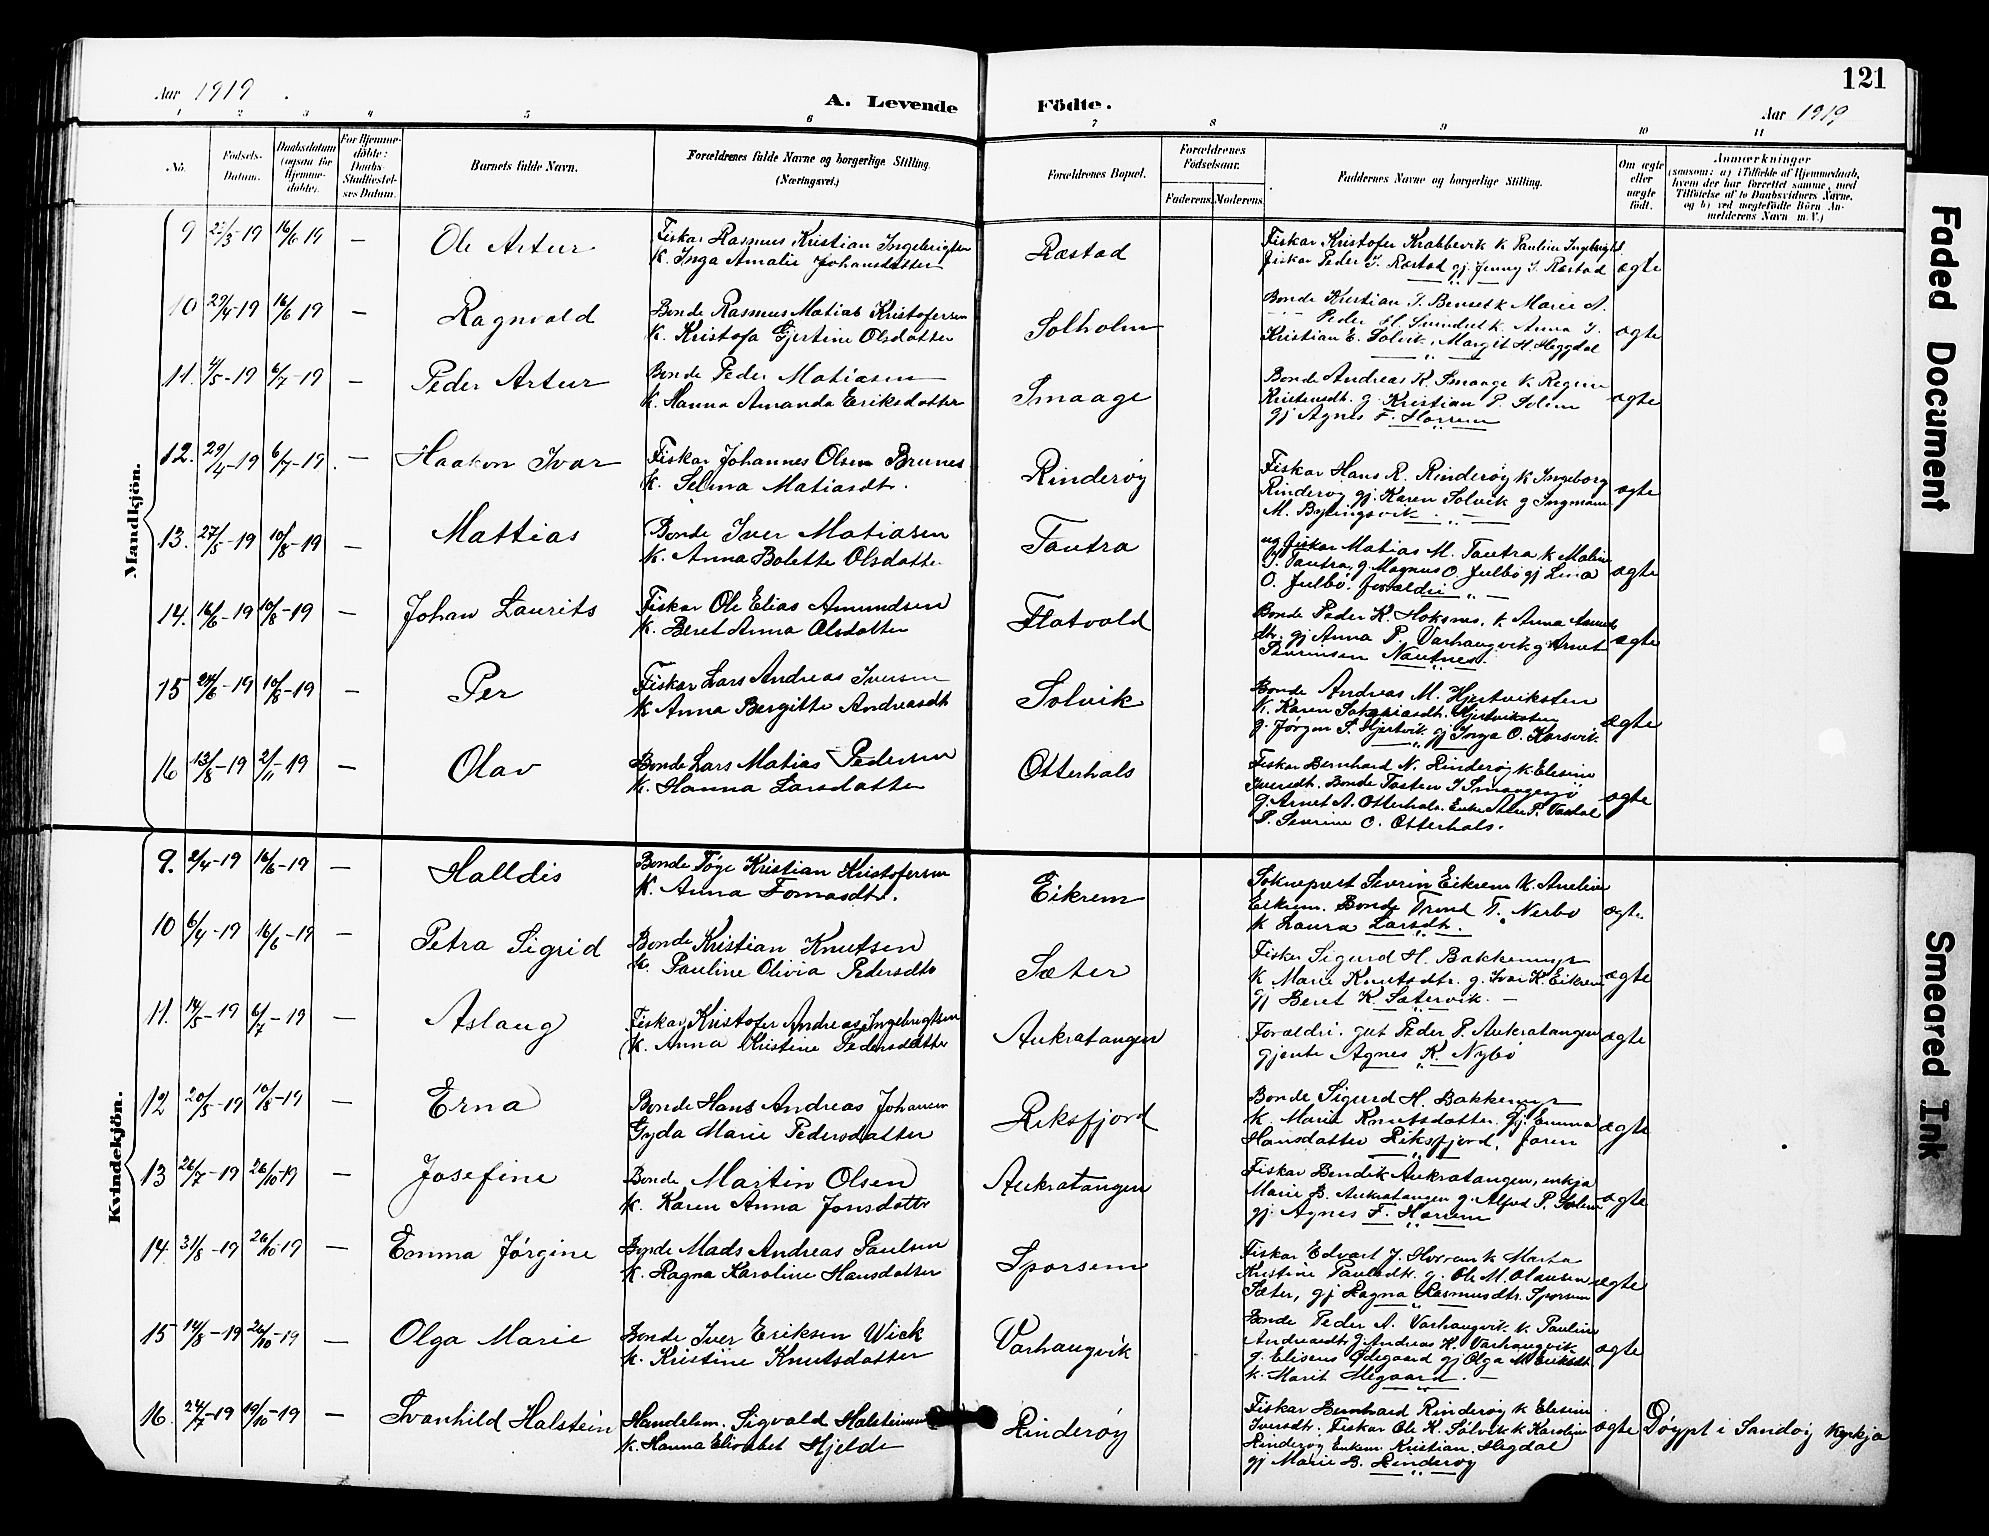 121
Aar 1919.
A. Levende
Födte.
Aar 1919
1 2 3 4 5 6 7 8 9 10 11
No.
Födsels-
Datum.
Daabsdatum
(ogsaa for
Hjemme-
döbte).
For Hjemme-
döbte:
Daabs-
Stadfæstel-
ses Datum.
Barnets fulde Navn.
Forældrenes fulde Navne og borgerlige Stilling.
(Næringsvei.)
Forældrenes Bopæl.
Forældrenes
Födselsaar.
Faderens. Moderens.
Faddernes Navne og borgerlige Stilling.
Om ægte
eller
uægte
födt.
Anmærkninger
(saasom: a) i Tilfælde af Hjemmedaab,
hvem der har forrettet samme, med
Tilföielse af to Daabsvidners Navne,
og b) ved uægtefödte Börn An-
melderens Navn m. V.)
Mandkjön.
9 22/3-19 16/6 19 — Ole Artur
Fiskar Rasmus Kristian Ingebrigtsen
K. Inga Amalie Johansdatter
Røstad
Fiskar Kristofer Krabbevik K Pauline Ingebrigtsd.
fiskar Peder I. Røstad gj. Jenny I. Røstad
ægte
10 29/4-19 16/6 19 — Ragnvald
Bonde Rasmus Matias Kristofersen
K. Kristofa Gjertine Olsdatter
Solholm
Bonde Kristian I. Benset K Marie A.
Peder H. K. Anna I.
Kristian E. Solvik, Margit H. Heggdal
ægte
11. 4/5-19 6/7-19 — Peder Artur
Bonde Peder Matiasen
K. Hanna Amanda Eriksdatter
Smaage
Bonde Andreas K. Smaage K. Regine
Kristensdt. g. Kristian P. Selim
gj Agnes F. Horrem
ægte
12. 29/4-19 6/7-19. — Haakon Ivar
Fiskar Johannes Olsen Brunes
K. Selma Matiasdt.
Rinderøy
Fiskar Hans R. Rinderøy K Ingeborg
Rinderøy gj. Karen Solvik g Ingmann
M. Bylingsvik
ægte
13. 27/5-19 10/8-19 — Mattias
Bonde Iver Matiasen
K. Anna Bolette Olsdatter
Tautra
ug fiskar Matias M. Tautra K Malin
O. Tautra, g. Magnus O. Julbø gj Lina
O. Julbø. foreldri
ægte
14. 16/6-19 10/8-19 — Johan Laurits
Fiskar Ole Elias Amundsen
K. Beret Anna Olsdatter
Flatvold
Bonde Peder K. Hoksnes, K. Anna Amund
dtr. gj Anna P. Varhaugvik g Arnet
Severinsen Nautnes.
ægte
15 24/6-19 10/8-19 — Per
Fiskar Lars Andreas Iversen
K Anna Bergitte Andreasdt
Solvik
Bonde Andreas M. Hjertviksten
K. Karen Sakariasdt. Hjertviksten
g. Jørgen S. Hjertvik gj Inga O. Korsvik.
ægte
16 13/8-19 2/11-19 — Olav
Bonde Lars Matias Pedersen
K. Hanna Larsdatter
Otterhals
Fiskar Bernhard N. Rinderøy K Elesine
Iversdt. Bonde Tosten I Smaageøi
g. Arnet A. Otterhals. Enke P. Vastol
P. Severine O. Otterhals.
ægte
Kvindekjön.
9. 2/4-19 16/6-19 — Halldis
Bonde Tøge Kristian Kristofersen
K. Anna Tomasdt.
Eikrem
Soknepræst Severin Eikrem K. Aneline
Eikrem. Bonde Trond T. Nerbø
K Laura Larsdt.
ægte
10 6/4-19 16/6-19 — Petra Sigrid
Bonde Kristian Knutsen
K. Pauline Olivia Pedersdtr
Sæter
Fiskar Sigurd H. Bakkemyr
K Marie Knutsdtr. g. Ivar K. Eikrem
gj Beret K. Sætervik. —
ægte
11. 14/5-19 6/7-19 — Aslaug
Fiskar Kristofer Andreas Ingebrigtsen
K. Anna Kristine Pedersdatter
Aukratangen
Foreldri. gut Peder P. Aukratangen
gjente Agnes K. Nybø
ægte
12 20/5-19 10/8-19 — Erna
Bonde Hans Andreas Johansen
Gyda Marie Pedersdatter
Riksfjord
Bonde Sigurd H. Bakkemyr
K. Marie Knutsdatter. Gj. Emma
Hansdatter Riksfjord, faren
ægte
13 26/7-19 26/10 19 — Josefine
Bonde Martin Olsen
K. Karen Anna Jonsdatter
Aukratangen
Fiskar Bendik Aukratangen, enkja
Marie B. Aukratangen g. Alfred P. Solem
gj. Agnes F. Horrem
ægte
14. 31/8-19 26/10 19 — Emma Jørgine
Bonde Mads Andreas Paulsen
K. Ragna Karoline Hansdatter
Sporsem
Fiskar Edvart J. Horrem K Marta
Kristine Paulsdt. g. Ole M. Olausen
Sæter, gj Ragna Rasmusdtr. Sporsem
ægte
15 14/8-19 26/10-19 — Olga Marie
Bonde Iver Eriksen Wick
K. Kristine Knutsdatter
Varhaugvik
Bonde Peder A. Varhaugvik K Pauline
Andreasdt g. Andreas K. Varhaugvik
g. Eliseus Ødegaard gj Olga M Eriksdt
K. Marit Megaard. —
ægte
16. 24/7-19 19/10-19 — Svanhild Halstein
Handelsm. Sigvald Halsteinsen
K. Hanna Elisabet Hjelde
Rinderøy
Fiskar Bernhard Rinderøy K Elesine
Iversdt. Fiskar Ole K. Sølvik K Karoline
Rinderøy Enkem. Kristian Hegdal
gj Marie B. Rinderøy
ægte
Døypt i Sandøy Kyrkja
Faded Document
Smeared Ink